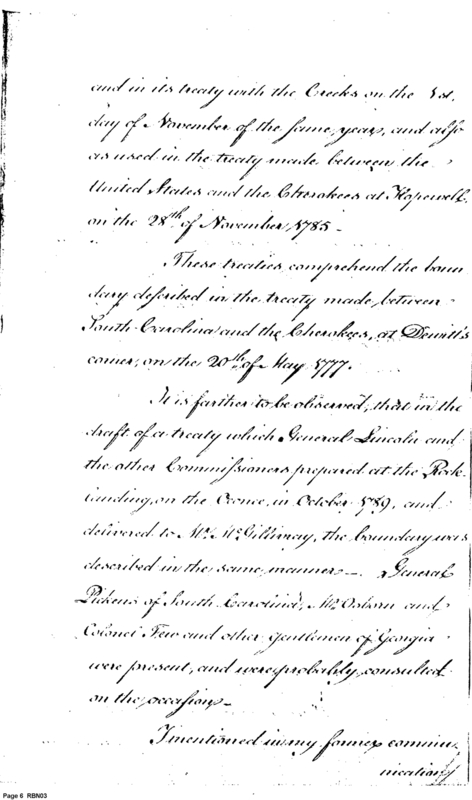 and in its treaty with the Creeks on the 1st.
day of November of the same year, and also
as used in the treaty made between the
United States and the Cherokees at Hopewell
on the 28th of November 1785 -
These treaties comprehend the boun
dary described in the treaty made between
South Carolina and the Cherokees, at Dewitt's
corner, on the 20th of May 1777.
It is farther to be observed, that in the
draft of a treaty which General Lincoln and
the other Commissioners prepared at the Rock
landing, on the Oconee, in October 1789, and
delivered to Mr. McGillivray, the boundary was
described in the same manner - General
Pickens of South Carolina, Mr. Osborn and
Colonel Few and other gentlemen of Georgia
were present, and were probably consulted
on the occasion -
I mentioned in my former commu
nication
Page 6 RBN03